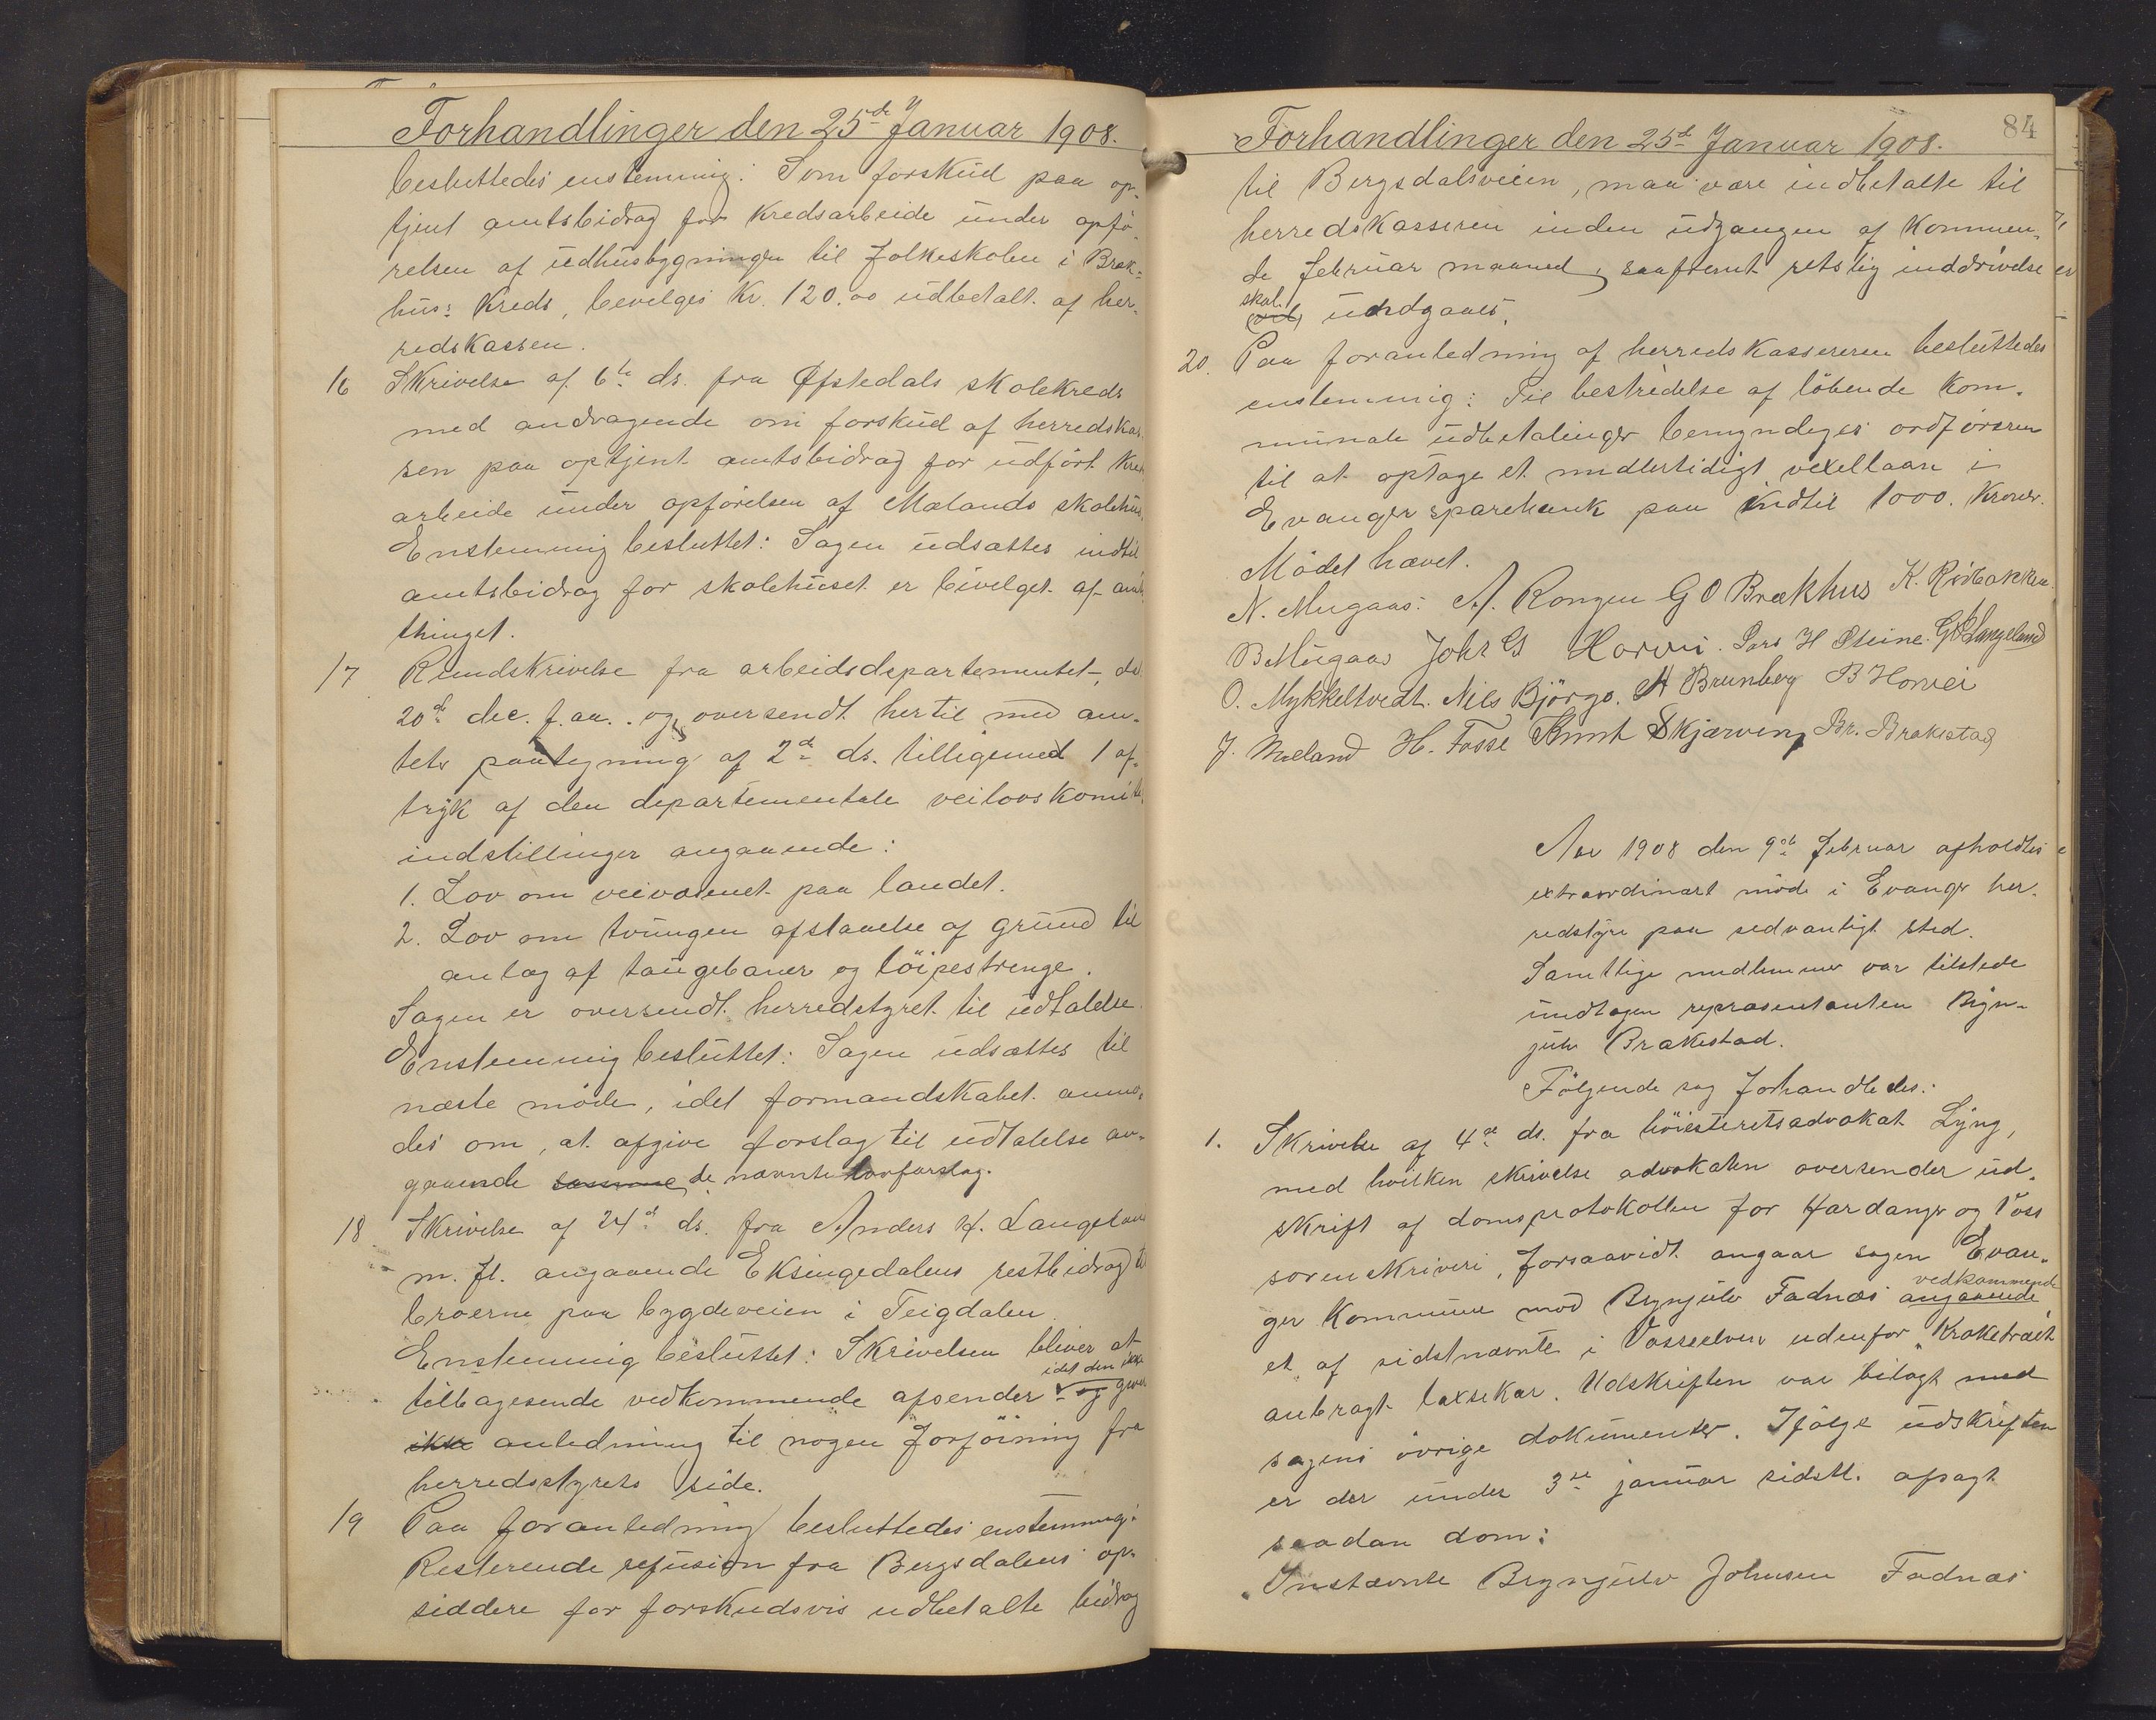 Forhandlinger den 25de Januar 1908.
besluttedes enstemmig: Som forskud paa op-
tjent amtsbidrag for kredsarbeide under opfø-
relsen af udhusbygningen til folkeskolen i Bræk-
hus: Kreds, bevilges Kr. 120.00 udbetalt af her-
redskassen.
16 Skrivelse af 6te ds. fra Øfstedals skolekreds
med andragende om forskud af herredskas-
sen paa optjent amtsbidrag for udført kreds
arbeide under opførelsen af Mælands skolehus.
Enstemmig besluttet: Sagen udsættes indtil
amtsbidrag for skolehuset er bevilget af amts
thinget.
17 Rundskrivelse fra arbeidsdepartementet, dat.
20de dec. f.aa. og oversendt hertil med am-
tets paategning af 2de ds. tilligemed 1 af-
tryk af den departementale veilovskomite
indstillinger angaaende:
1. Lov om veivæsenet paa landet.
2. Lov om tvungen afstaaelse af grund til
anlæg af taugebaner og løipestrenge.
Sagen er oversendt herredstyret til udtalelse.
Enstemmig besluttet: Sagen udsættes til
næste møde, idet formandskabet anmo-
des om, at afgive forslag til udtalelse an-
gaaende samme de nævnte lovforslag.
18 Skrivelse af 24de ds. fra Anders H. Langeland
m. fl. angaaende Eksingedalens restbidrag til
broerne paa bygdeveien i Teigdalen.
Enstemmig besluttet: Skrivelsen bliver at
idet den ikke
tilbagesende vedkommende afsender og giver
ikke anledning til nogen forføining fra
herredsstyrets side.
19 Paa foranledning besluttedes enstemmig:
Resterende refusion fra Bergsdalens op-
siddere for forskudsvis udbetalte bidrag
84
Forhandlinger den 25de Januar 1908.
til Bergsdalsveien, maa være indbetalte til
herredskasseren inden udgangen af kommen-
de februar maaned, saafremt retslig inddrivelse
skal
vil undgaaes.
20. Paa foranledning af herredskassereren besluttedes
enstemmig: Til bestridelse af løbende kom-
munale udbetalinger bemyndiges ordføreren
til at optage et midlertidigt vexellaan i
Evanger sparebank paa indtil 1000. Kroner.
Mødet hævet.
N. Mugaas. A. Rongen G O Brækhus K. Rødbakken
B Mugaas Johs G Horvei. Lars H Steine. G Langeland
O. Mykkeltvedt. Nils Bjørgo. A Brunborg B Horvei
J. Mæland H. Fosse Knut Skjærveng Br. Brakestad
Aar 1908 den 9de februar afholdtes
extraordinært møde i Evanger her-
redstyre paa sedvanligt sted.
Samtlige medlemmer var tilstede
undtagen repræsentanten Bryn-
julv Brakestad.
Følgende sag forhandledes:
1. Skrivelse af 4de ds. fra høiesteretsadvokat Lyng,
med hvilken skrivelse advokaten oversender ud-
skrift af domsprotokollen for Hardanger og Voss
sorenskriveri, forsaavidt angaar sagen Evan-
vedkommende
ger kommune mod Brynjulv Fadnæs angaaende
et af sidstnævnte i Vosseelven udenfor "Kraketræet"
anbragt laxsekar. Udskriften var bilagt med
sagens øvrige dokumenter. Ifølge udskriften
er der under 3de januar sidstl. afsagt
saadan dom:
"Instævnte Brynjulv Johnsen Fadnæs